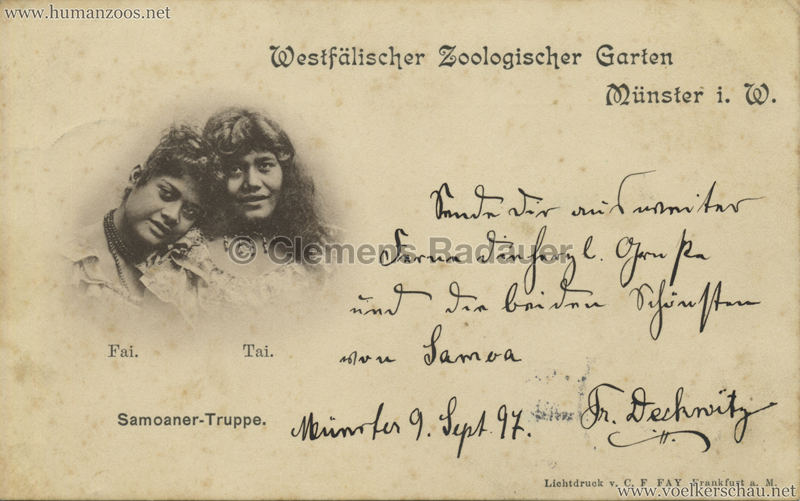 www.humanzoos.net
Westfälischer Zoologischer Garten
Münster i. W.
Sende Dir aus weiter
Ferne die herzl. Grüße
und die beiden Schönsten
von Samoa
© Clemens Radauer
Fai. Tai.
Samoaner-Truppe.
Münster 9. Sept. 97. Fr. Deckwitz
Lichtdruck v. C. F. FAY, Frankfurt a. M.
www.voelkerschau.net